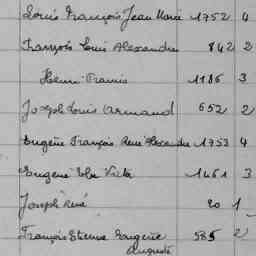 Louis François Jean Marie 1752 4
François Louis Alexandre 842 2
Henri Francis 1186 3
Joseph Louis Armand 652 2
Eugène François René Alexandre 1753 4
Eugène Victor 1461 3
Joseph René 20 1
François Etienne Eugène 585 2
Auguste